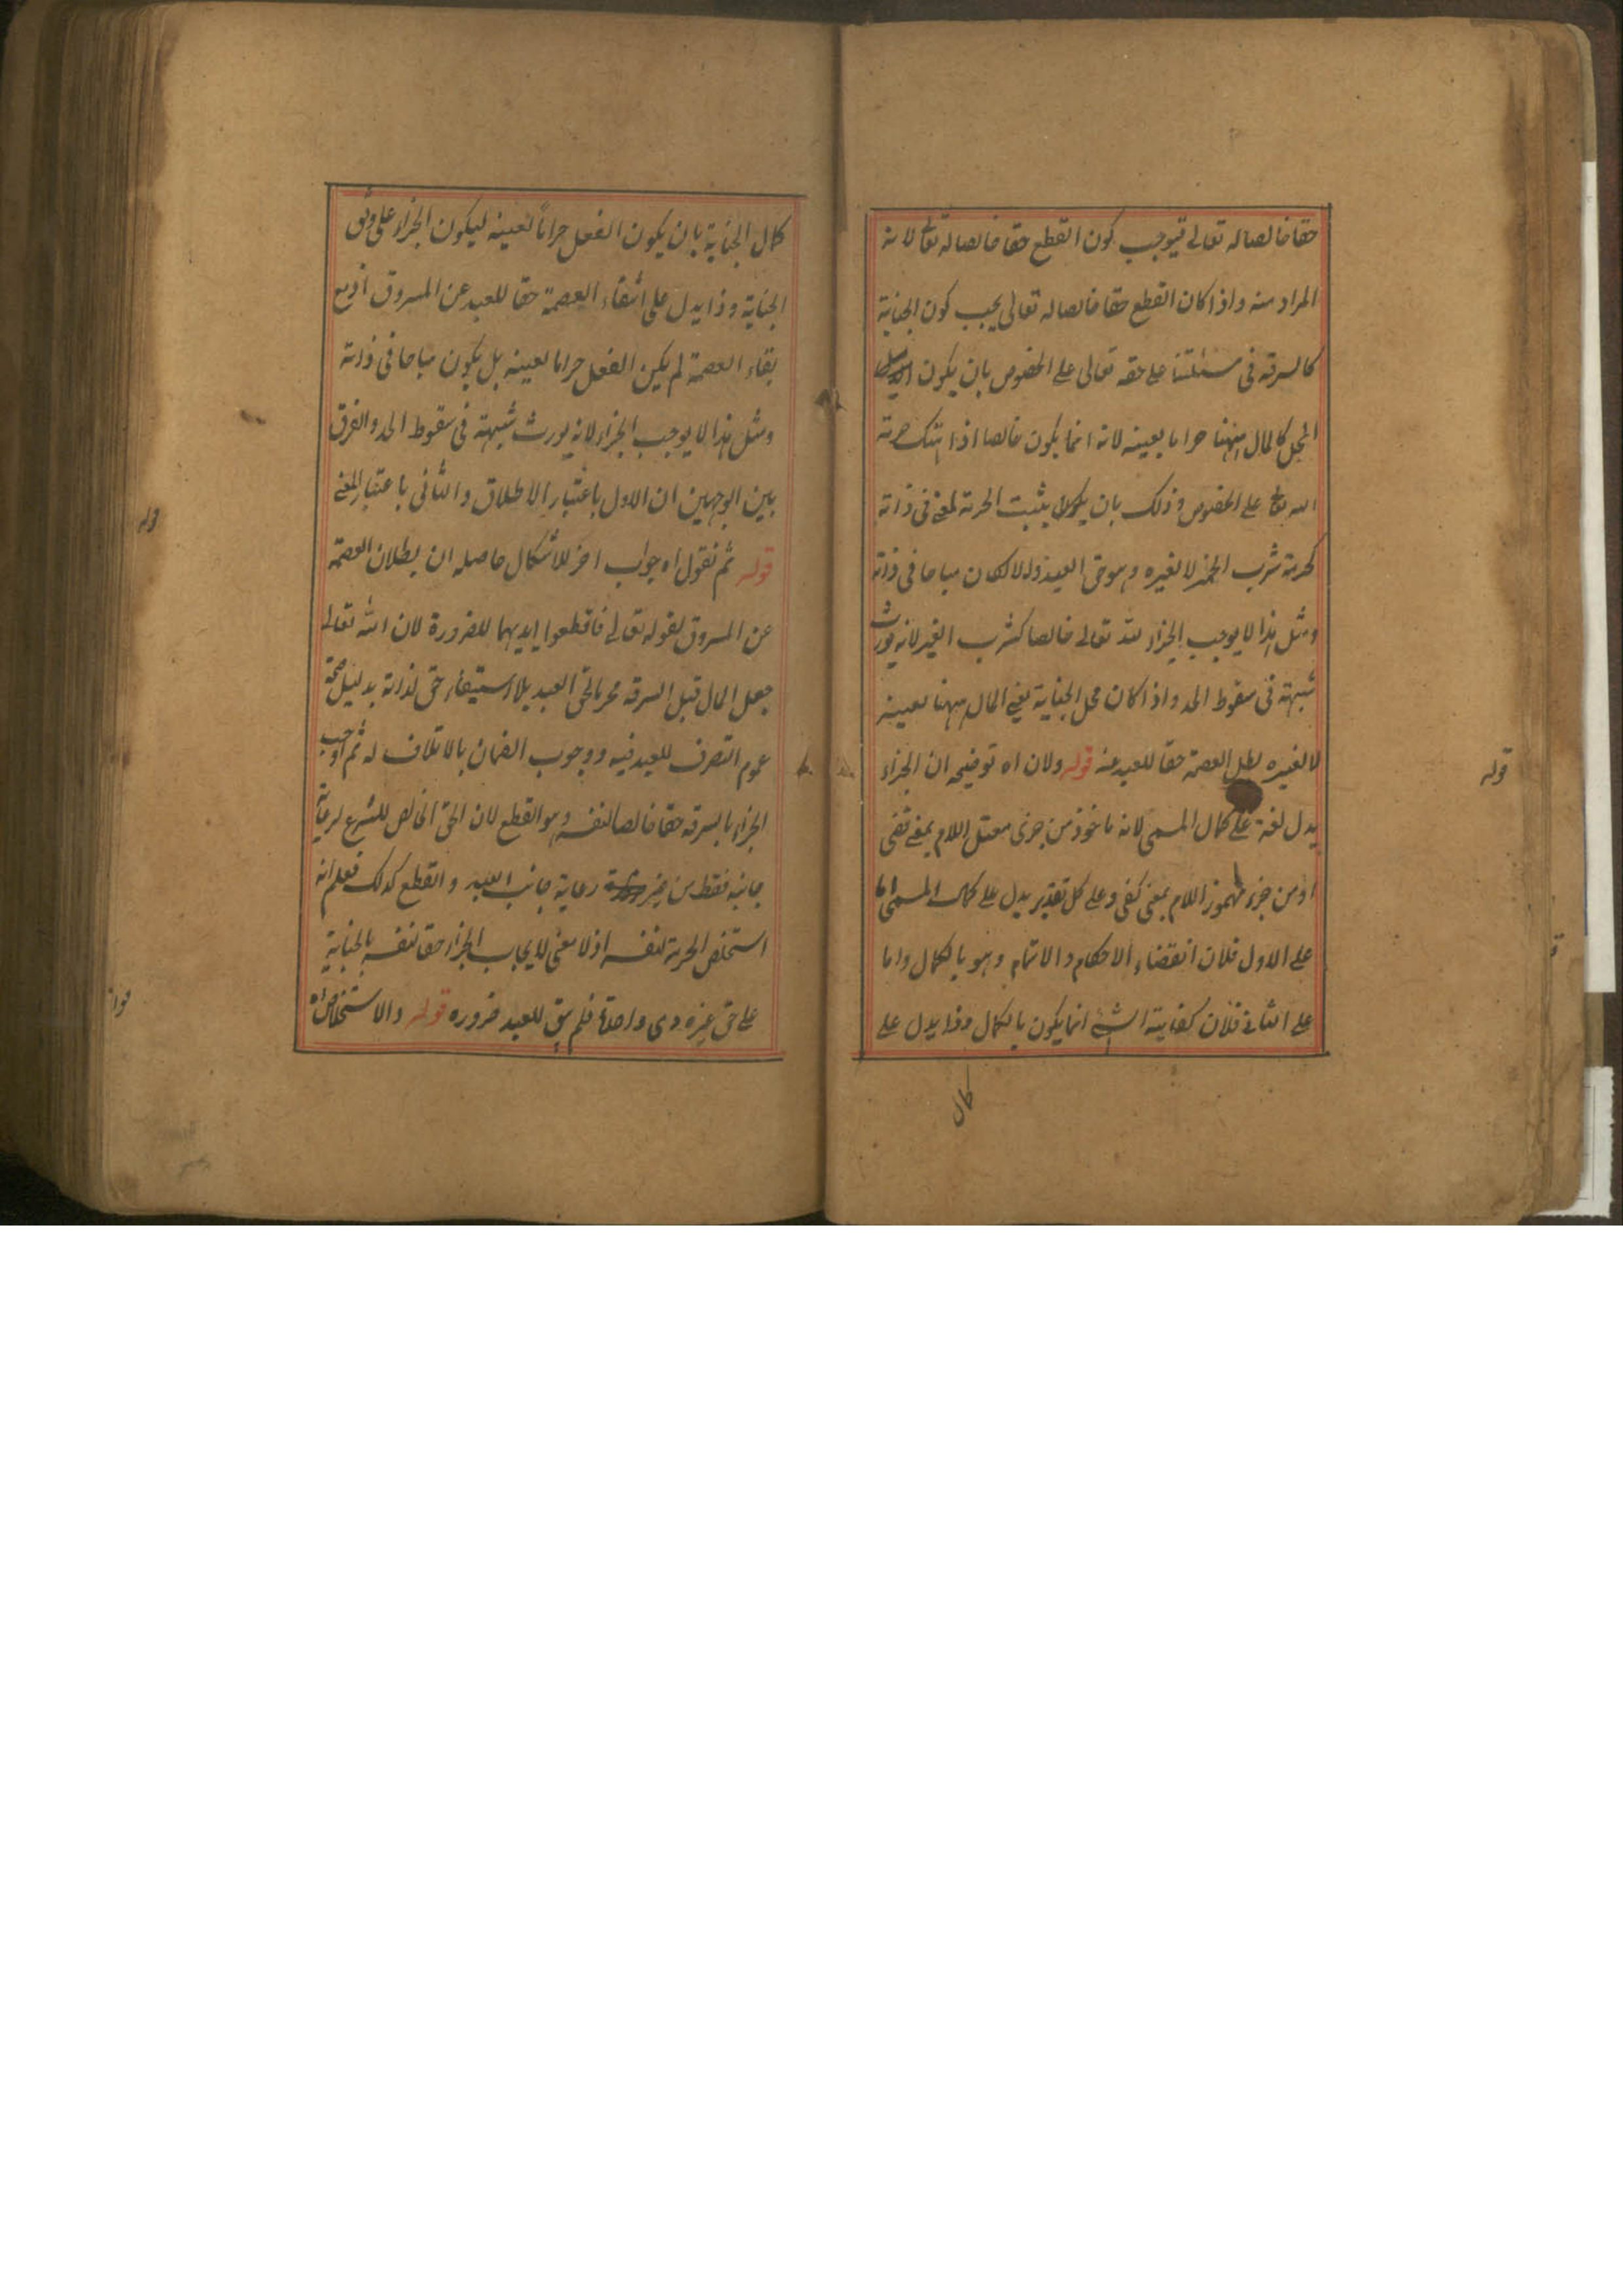 حقا خالصا له تعالى فيوجب كون القطع حقا خالصا له تعالى لانه
المراد منه واذا كان القطع حقا خالصا له تعالى يجب كون الجناية
كالسرقة فى مسئلتنا على حقه تعالى على الخصوص بان يكون
المحل كالمال ههنا حراما بعينه لانه انما يكون خالصا اذا انتهك حرمة
الله تع على الخصوص وذلك بان يثبت الحرمة لمعنى فى ذاته
كحرمة شرب الخمر لا لغيره وهو حق العبد والا لكان مباحا فى ذاته
ومثل هذا لا يوجب الجزاء لله تعالى خالصا كشرب الغير لانه يورث
شبهة فى سقوط الحد واذا كان محل الجناية يعنى المال ههنا لعينه
لا لغيره بطل العصمة حقا للعبد عنه قوله ولان اه توضيحه ان الجزاء
يدل لغة على كمال المسمى لانه ماخوذ من جزى معتل اللام بمعنى قضى
او من جزء مهموز اللام بمعنى كفى وعلى كل تقدير يدل على كمال المسمى اما
على الاول فلان انقضاء الاحكام والاتمام وهو بالكمال واما
على الثانى فلان كفاية الشئ انما يكون بالكمال وذا يدل على
كمال
قوله
كمال الجناية بان يكون الفعل حراماً لعينه ليكون الجزاء على وفق
الجناية وذا يدل على انتفاء العصمة حقا للعبد عن المسروق اذ مع
بقاء العصمة لم يكن الفعل حراما لعينه بل يكون مباحا فى ذاته
ومثل هذا لا يوجب الجزاء لانه يورث شبهة فى سقوط الحد والفرق
بين الوجهين ان الاول باعتبار الاطلاق والثانى باعتبار المعنى
قوله ثم نقول اه جواب اخر للاشكال حاصله ان بطلان العصمة
عن المسروق لقوله تعالى فاقطعوا ايديهما للضرورة لان الله تعالى
جعل المال قبل السرقة محرما لحق العبد بلا استيفاء حق لذاته بدليل صحة
عموم التصرف للعبد فيه ووجوب الضمان بالاتلاف له ثم اوجب
الجزاء بالسرقة حقا خالصا لنفسه وهو القطع لان الحق الخالص للشرع لرعاية
جانبه فقط من غير رعاية جانب العبد والقطع كذلك فعلم انه
استخلص الحرمة لنفسه اذ لا معنى لايجاب الجزاء حقا لنفسه بالجناية
على حق غيره وهى واحدة فلم يبق للعبد ضرورة قوله والاستخلاص اه
قوله
قوله